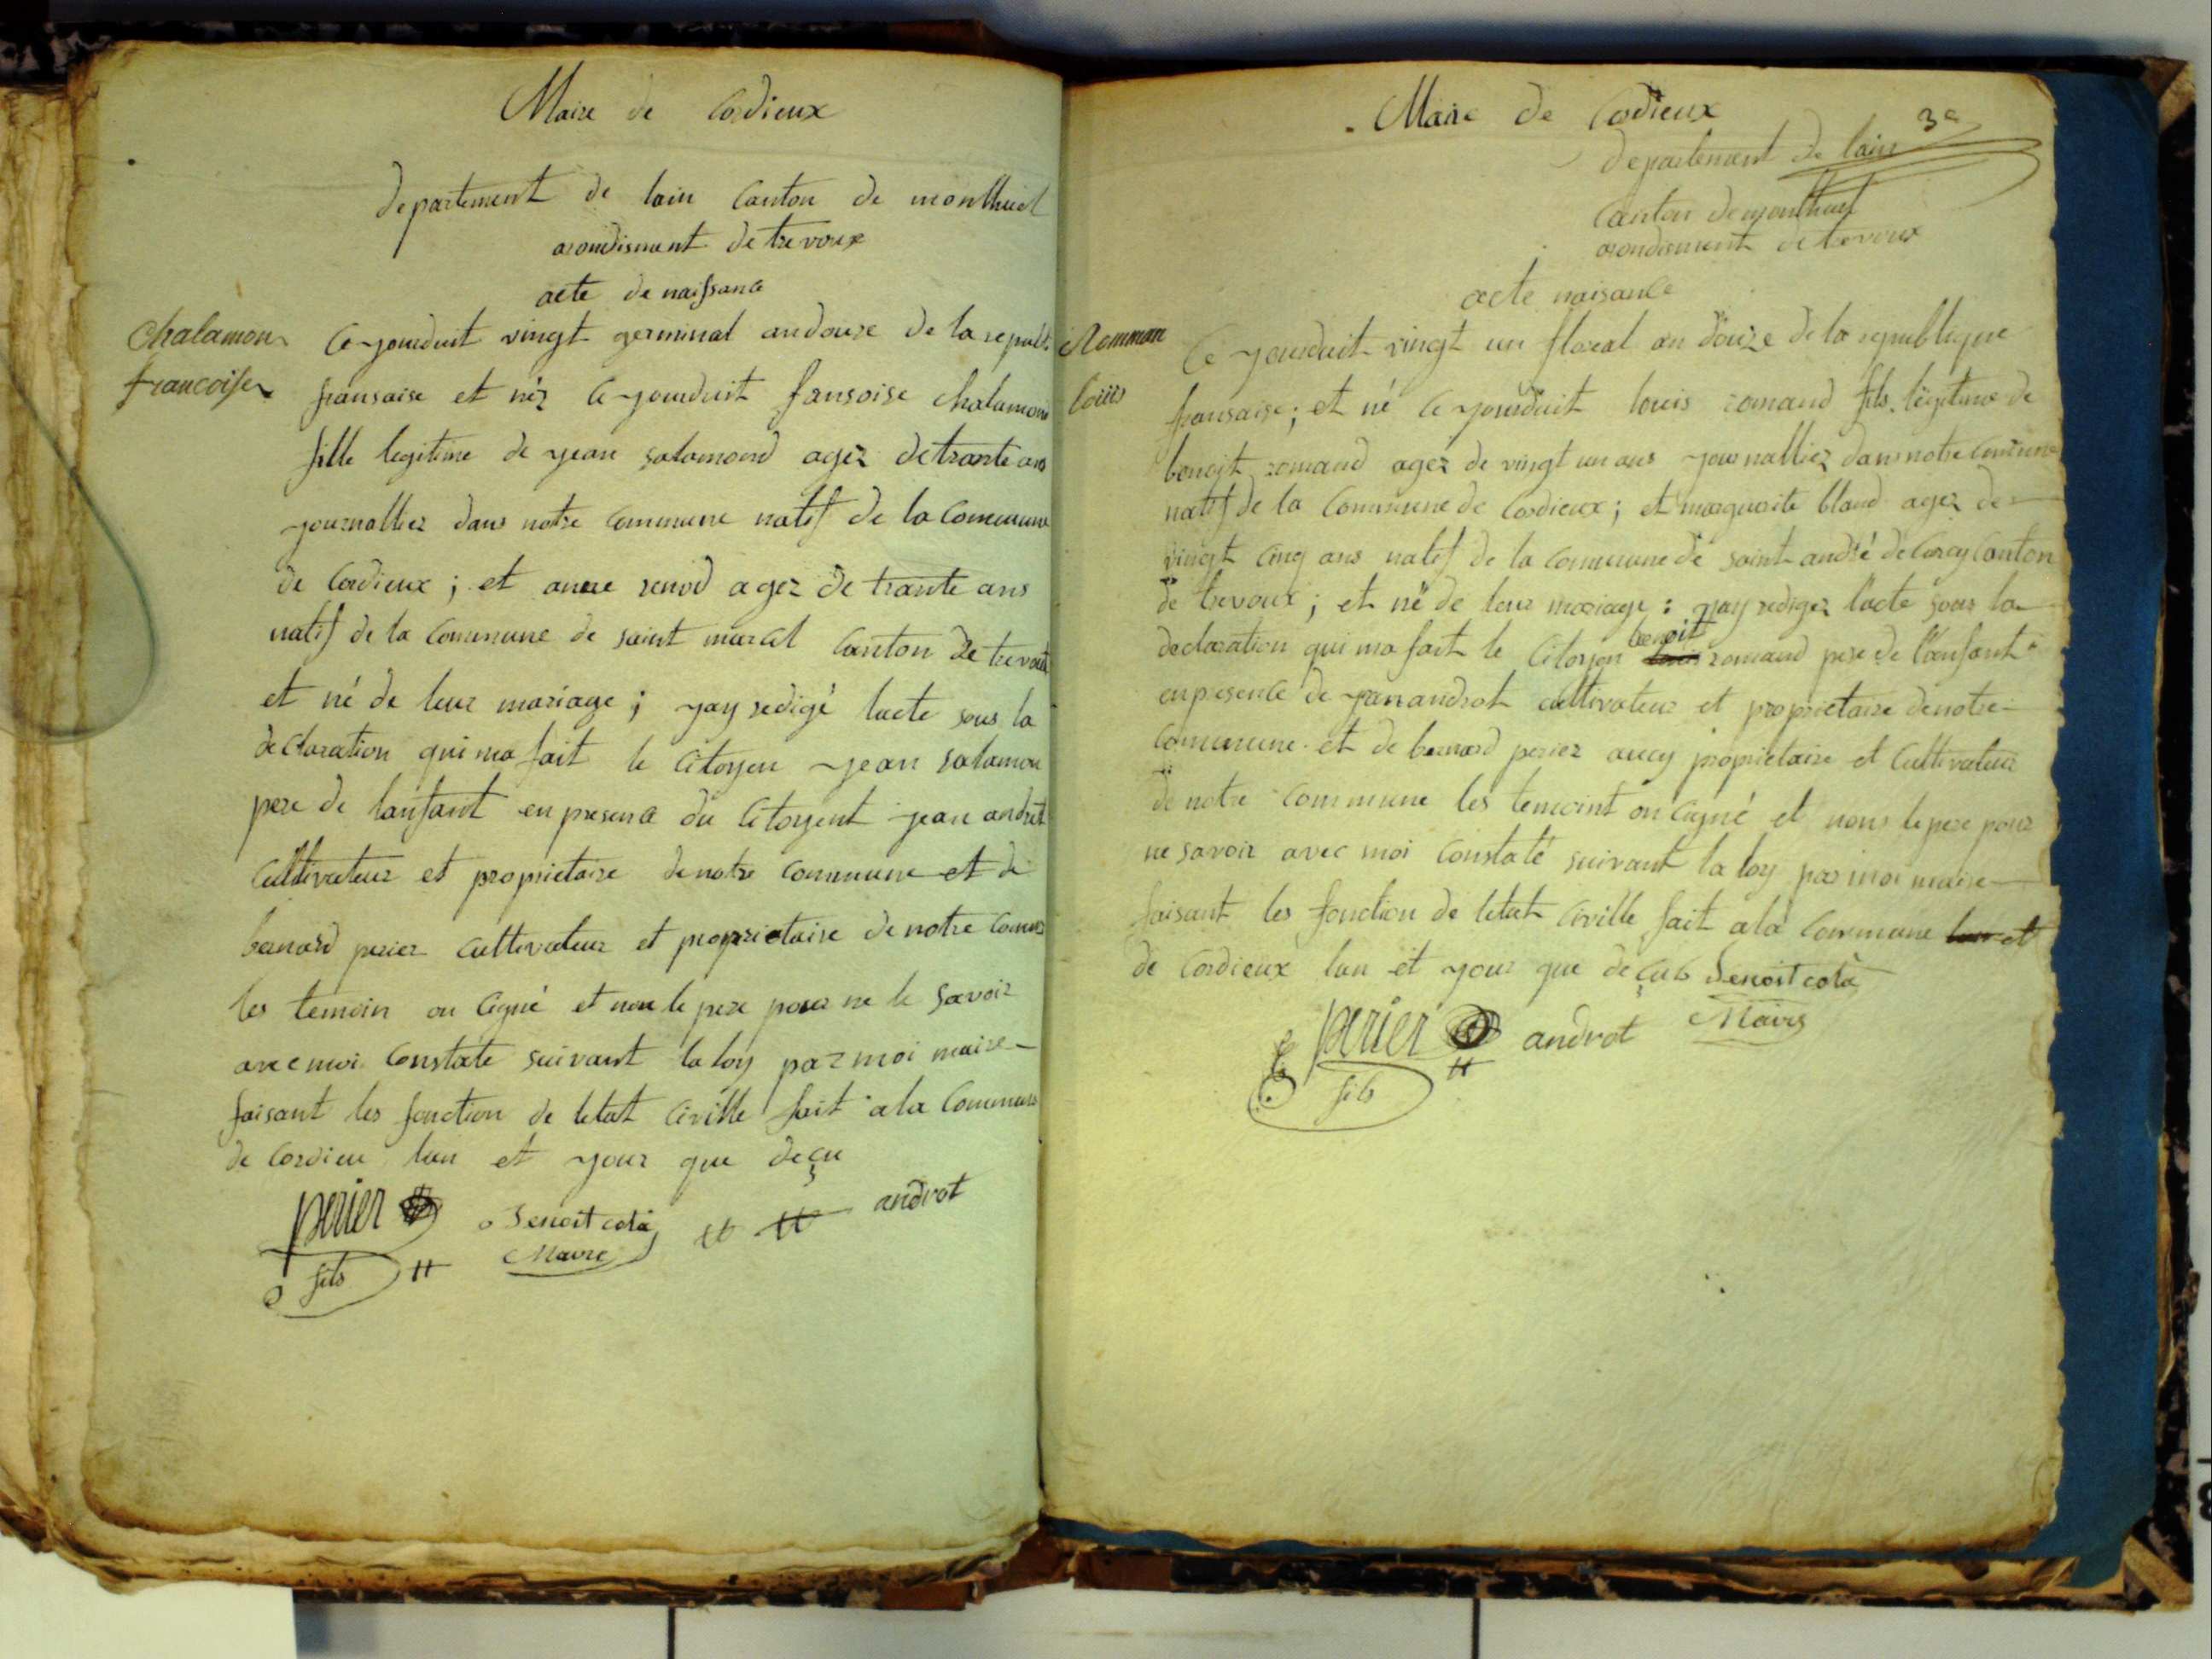 Maire de Cordieux
departement de lain Canton de montluel
arondisment de trevoux
acte de naissance
Chalamon
francoise
Ce jourduit vingt germinal an douze de la republ.
fransaise et néz le jourduit fansoise Chalamon
fille legitime de jean salamond agez de trante ans
journallier dans notre commune natif de la Commune
de Cordieux ; et anne renod agez de trante ans
natif de la Commune de saint marcel Canton de trevoux
et né de leur mariage ; jay redigé lacte sous la
declaration qui ma fait le Citoyen jean salamon
pere de lanfant en presence du Citoyent jean androt
Cultivateur et proprietaire de notre commune et de
bernard perier cultivateur et proprietaire de notre Commune
les temoin on Cigné et non le pere pour ne le savoir
avec moi Constate suivant la loy par moi maire
faisant les fonction de letat Civille fait a la Commune
de Cordieu lan et jour que deçu
perier
fils
Benoit cola
Maire
androt
Maire de Cordieux
3e
departement de lain
Canton de montluel
arondisment de trevoux
acte naisance
Romman
louis
Ce jourduit vingt un floreal an douze de la republique
fransaise ; et né le jourduit louis romand fils legitime de
benoit romand agez de vingt un ans journalliez dans notre Commune
natif de la Commune de Cordieux ; et marguerite bland agez de
vingt cinq ans natif de la commune de saint andré de Corcy Canton
de trevoux ; et né de leur mariage : jay redigez lacte sous la
declaration qui ma fait le Citoyen benoit romand pere de lanfant
en presence de jean androt cultivateur et proprietaire de notre
Commune et de bernard perier aucy proprietaire et Cultivateur
de notre Commune les temoint on Cigné et nons le pere pour
ne savoir avec moi Constaté suivant la loy par moi maire
faisant les fonction de letat Civille fait a la Commune
de Cordieux lan et jour que deçus Benoit cola
Maire
perier
fils
androt